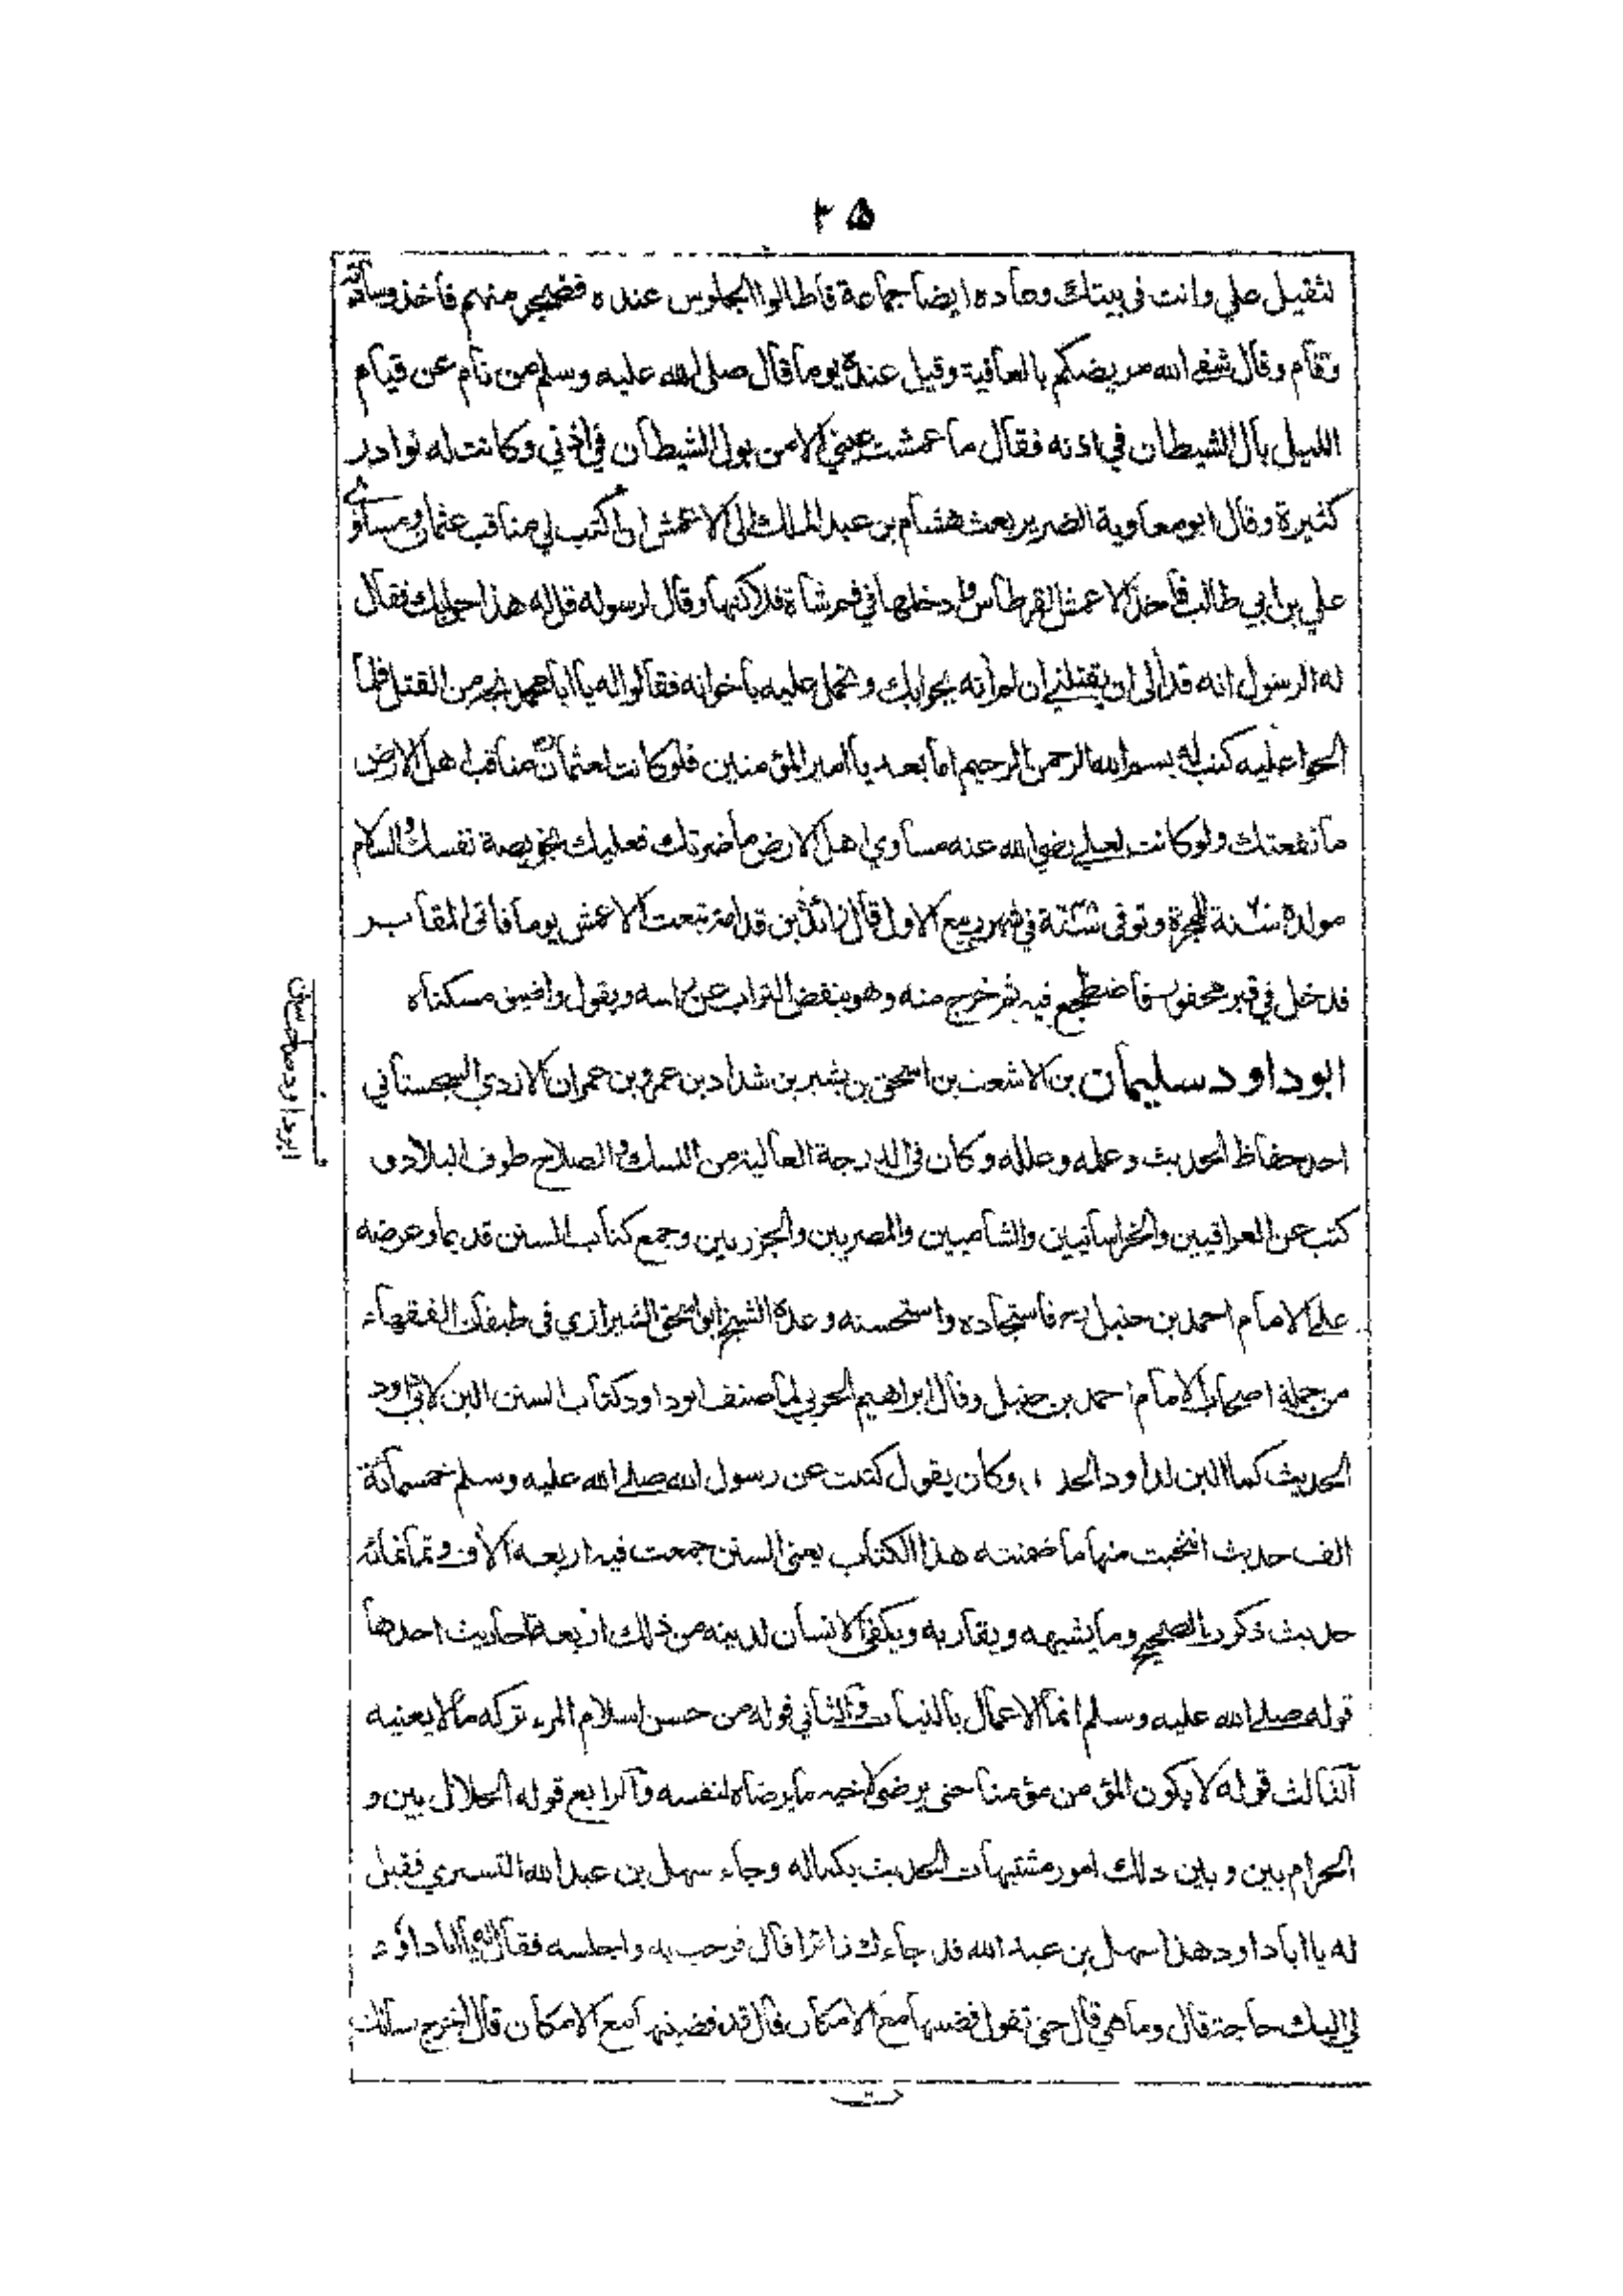 ٢٥
لثقيل علي وانت في بيتك وعاده ايضا جماعة فاطالوا الجلوس عنده فضجر منهم فاخذ وسادته
وقام وقال شفى الله مريضكم بالعافية وقيل عنده يوما قال صلى الله عليه وسلم من نام عن قيام
الليل بال الشيطان في اذنه فقال ما عمشت عيني الا من بول الشيطان في اذني وكانت له نوادر
كثيرة وقال ابو معاوية الضرير بعث هشام بن عبد الملك الى الاعمش ان اكتب لي مناقب عثمان ومساوي
علي بن ابي طالب فاخذ الاعمش القرطاس وادخلها في فم شاة فلاكتها وقال لرسوله قل له هذا جوابك فقال
له الرسول انه قد آلى ان يقتلني ان لم آته بجوابك وتحمل عليه باخوانه فقالوا له يا ابا محمد نجه من القتل فلما
الحوا عليه كتب له بسم الله الرحمن الرحيم اما بعد يا امير المؤمنين فلو كانت لعثمان مناقب اهل الارض
ما نفعتك ولو كانت لعلي رضي الله عنه مساوي اهل الارض ما ضرتك فعليك بخويصة نفسك والسلام
مولده سنة للهجرة وتوفى في شهر ربيع الاول قال زائدة بن قدامة تبعت الاعمش يوما فاتى المقابر
فدخل في قبر محفور فاضطجع فيه ثم خرج منه وهو ينفض التراب عن راسه ويقول واضيق مسكناه
ابو داود سليمان بن الاشعث بن اسحق بن بشير بن شداد بن عمرو بن عمران الازدي السجستاني
احد حفاظ الحديث وعلمه وعلله وكان في الدرجة العالية من النسك والصلاح طوف البلاد و
كتب عن العراقيين والخراسانيين والشاميين والمصريين والجزريين وجمع كتاب السنن قديما وعرضه
على الامام احمد بن حنبل رح فاستجاده واستحسنه وعده الشيخ ابو اسحق الشيرازي في طبقات الفقهاء
من جملة اصحاب الامام احمد بن حنبل وقال ابراهيم الحربي لما صنف ابو داود كتاب السنن الين لابي داود
الحديث كما الين لداود الحد وكان يقول كتبت عن رسول الله صلى الله عليه وسلم خمسمائة
الف حديث انتخبت منها ما ضمنته هذا الكتاب يعني السنن جمعت فيه اربعة الاف وثمانمائه
حديث ذكرت الصحيح وما يشبهه ويقاربه ويكفي الانسان لدينه من ذلك اربعة احاديث احدها
قوله صلى الله عليه وسلم انما الاعمال بالنيات والثاني قوله من حسن اسلام المرء تركه ما لا يعنيه
الثالث قوله لا يكون المؤمن مؤمنا حتى يرضى لاخيه ما يرضاه لنفسه والرابع قوله الحلال بين و
الحرام بين وبين ذلك امور مشتبهات الحديث بكماله وجاء سهل بن عبد الله التستري فقيل
له يا ابا داود هذا سهل بن عبد الله قد جاءك زائرا قال فرحب به واجلسه فقال له يا ابا داود
لي اليك حاجة قال وما هي قال حتى تقول قضيتها مع الامكان قال قد قضيتها مع الامكان قال اخرج لسانك
ابو داود صاحب سنن